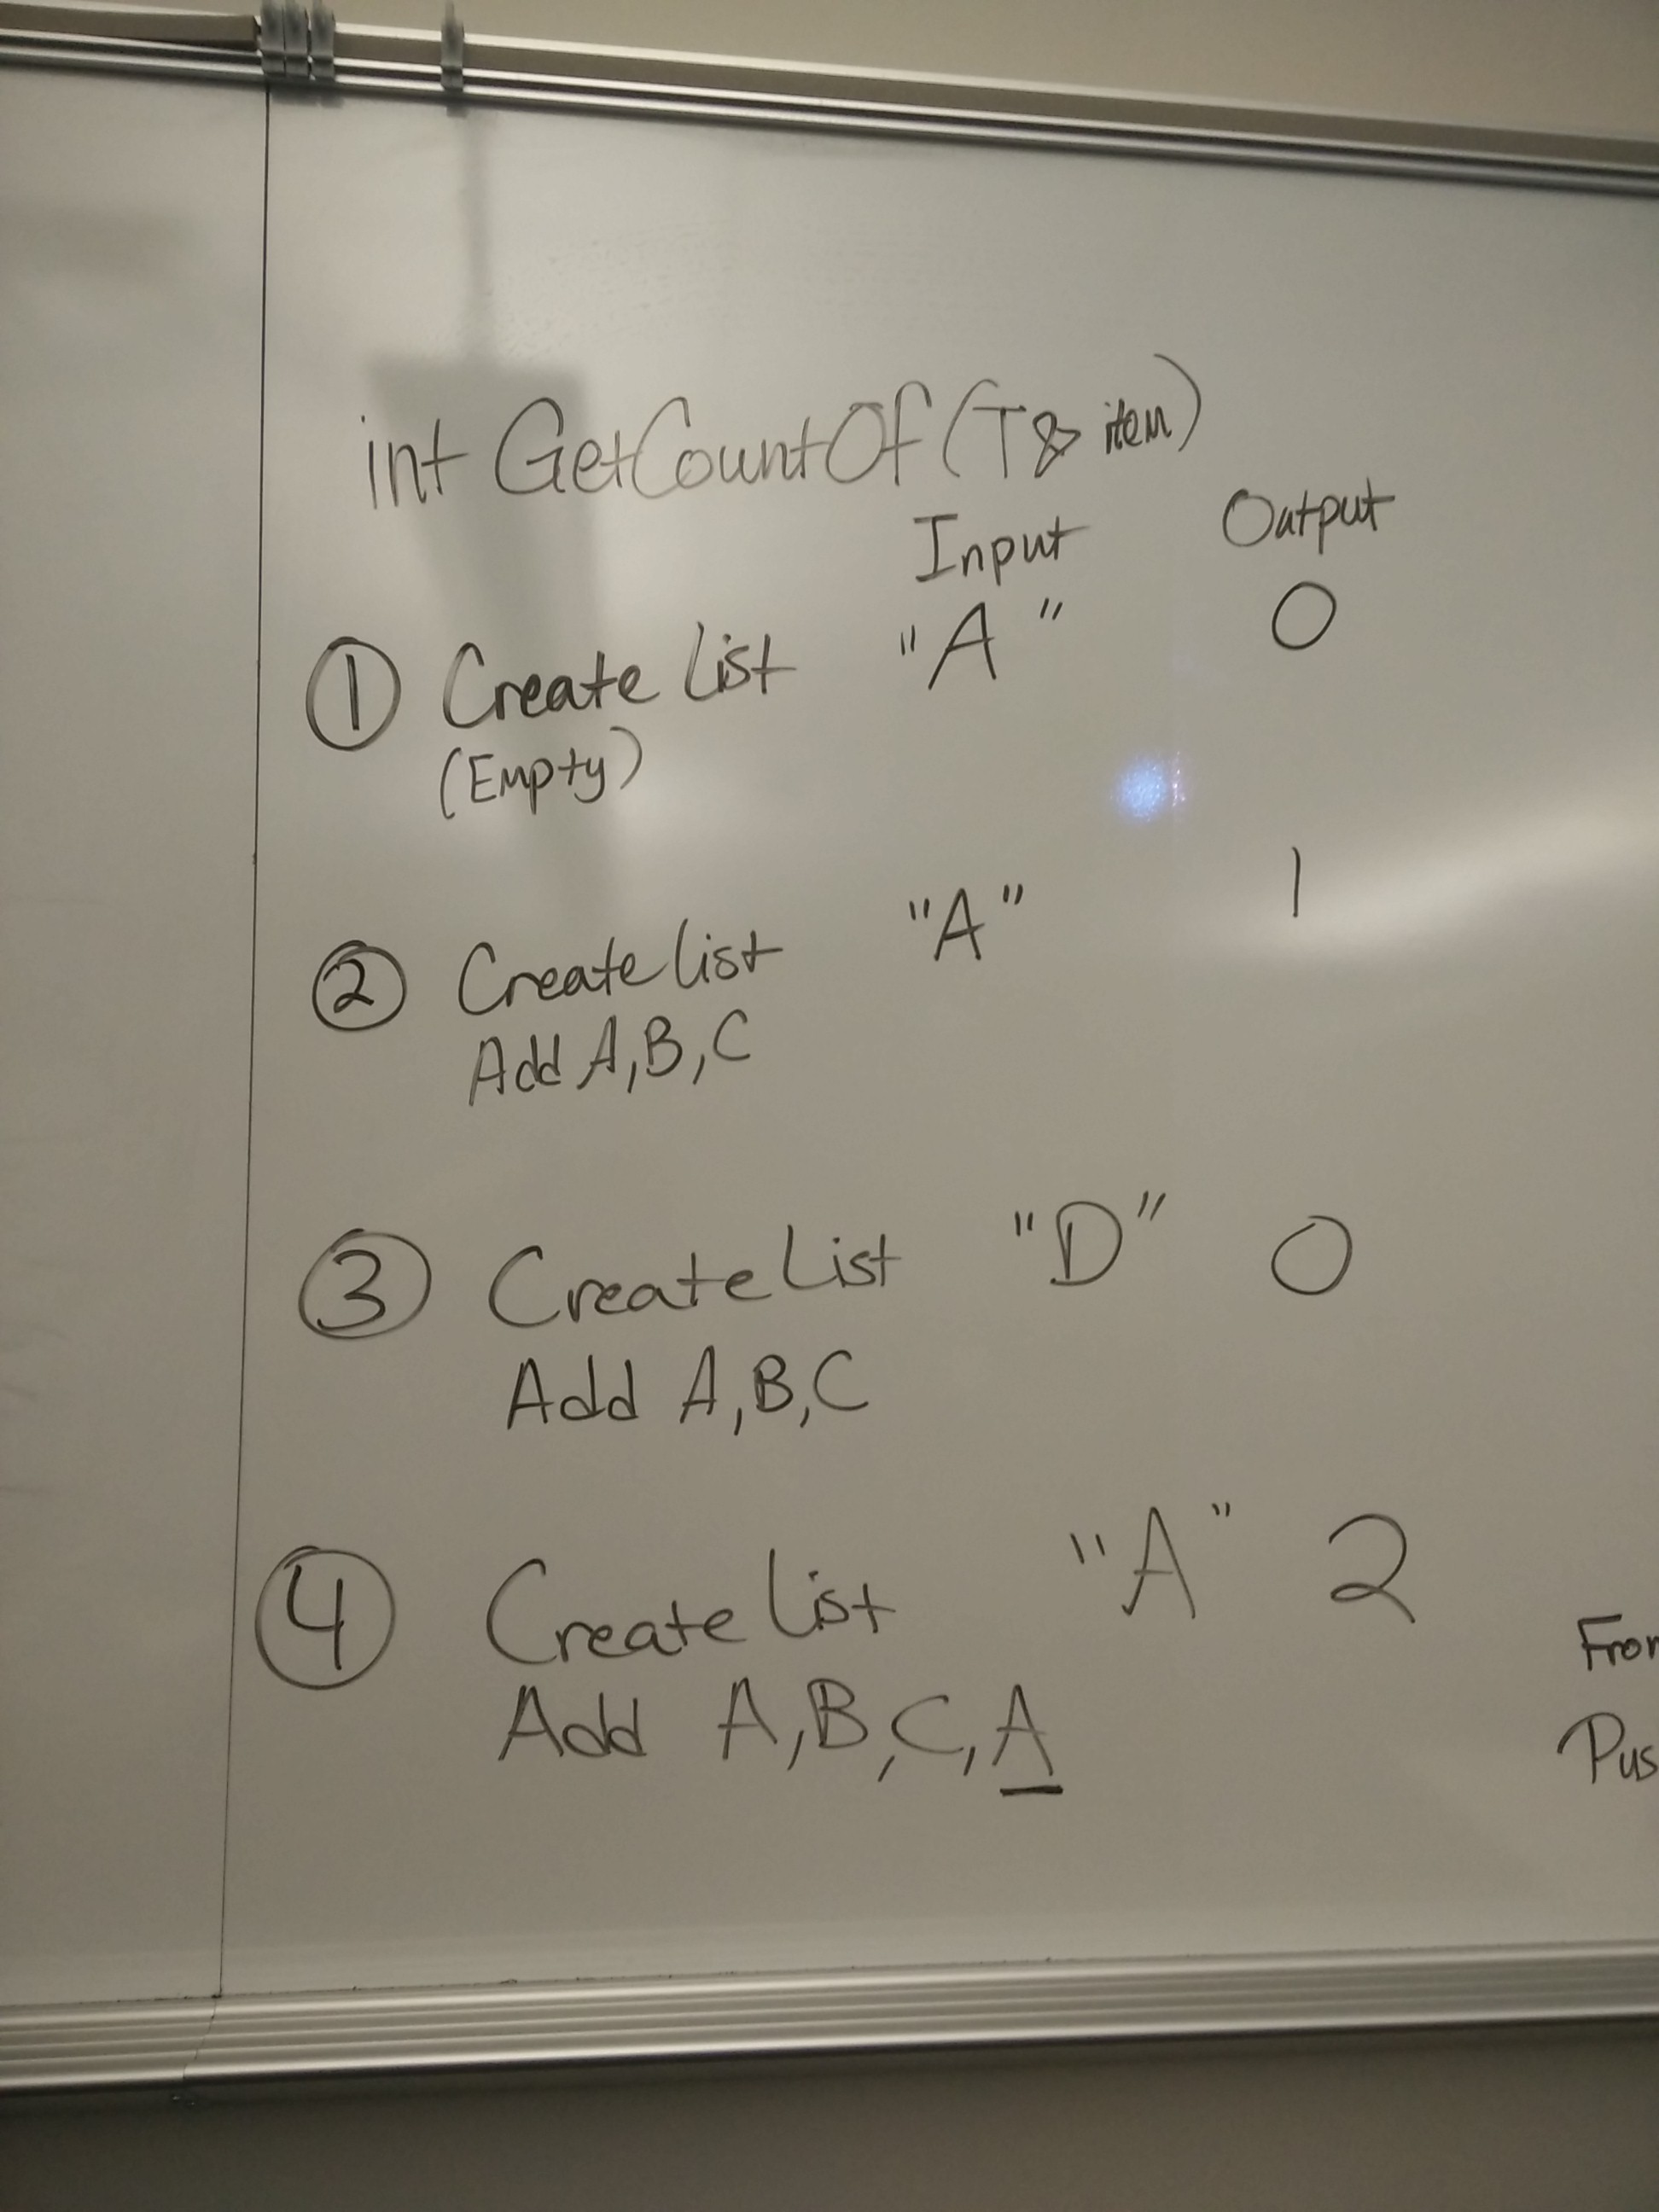 int GetCountOf (T& item)
Input Output
① Create List "A" 0
(Empty)
② Create list "A" 1
Add A,B,C
③ Create List "D" 0
Add A,B,C
④ Create List "A" 2
Add A,B,C,A